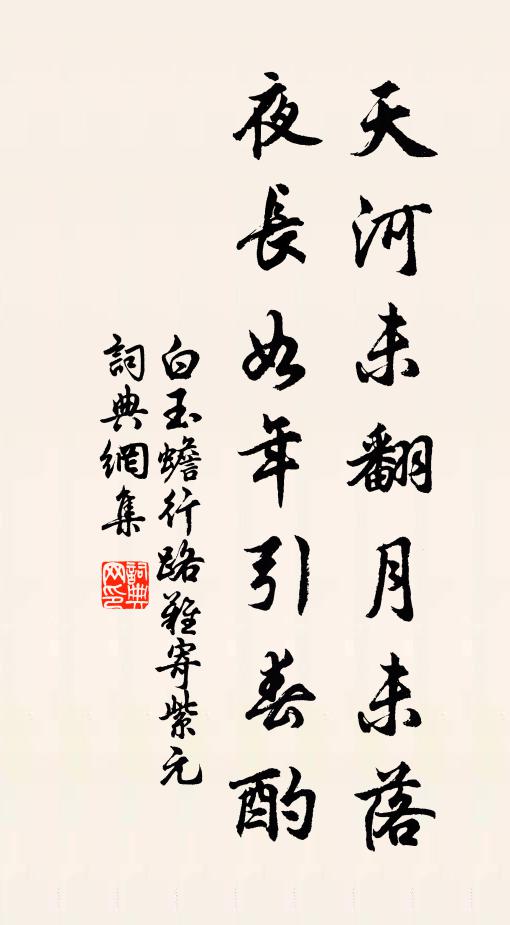 天河未翻月未落
夜長如年引春酌
白玉蟾行路難寄紫元
詞典網集
詞典網印